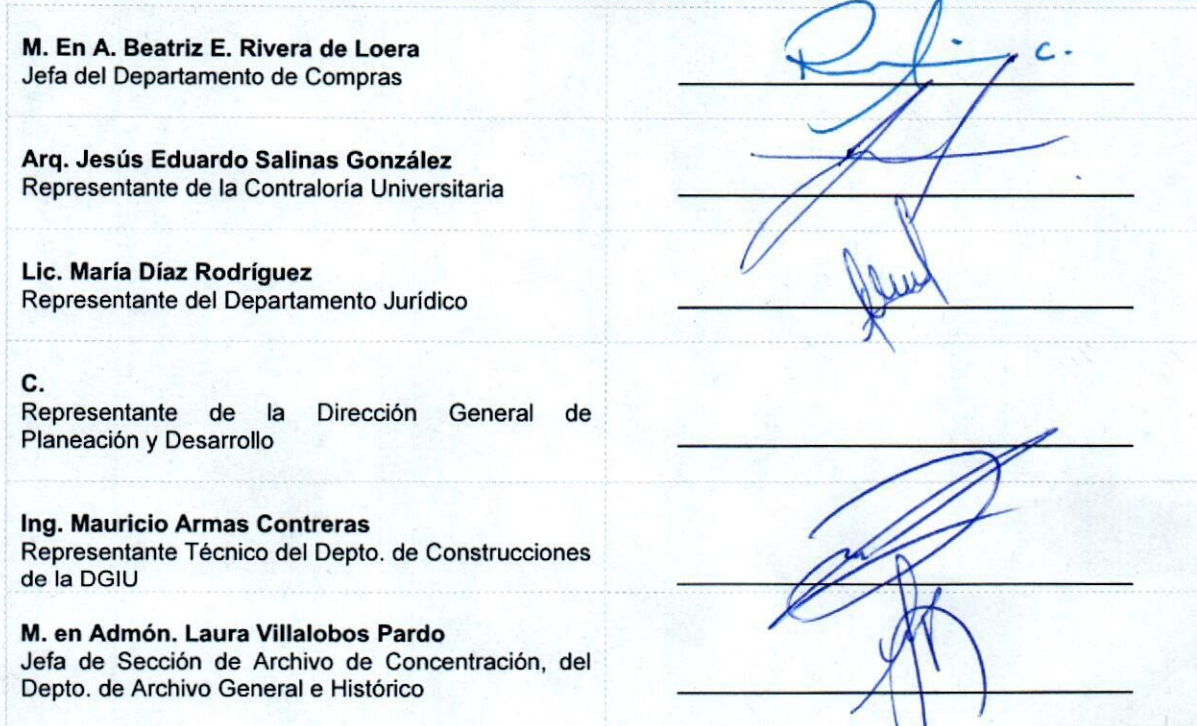 M. En A. Beatriz E. Rivera de Loera
Jefa del Departamento de Compras
c.
Arq. Jesús Eduardo Salinas González
Representante de la Contraloría Universitaria
Lic. María Díaz Rodríguez
Representante del Departamento Jurídico
C.
Representante de la Dirección General de
Planeación y Desarrollo
Ing. Mauricio Armas Contreras
Representante Técnico del Depto. de Construcciones
de la DGIU
M. en Admón. Laura Villalobos Pardo
Jefa de Sección de Archivo de Concentración, del
Depto. de Archivo General e Histórico